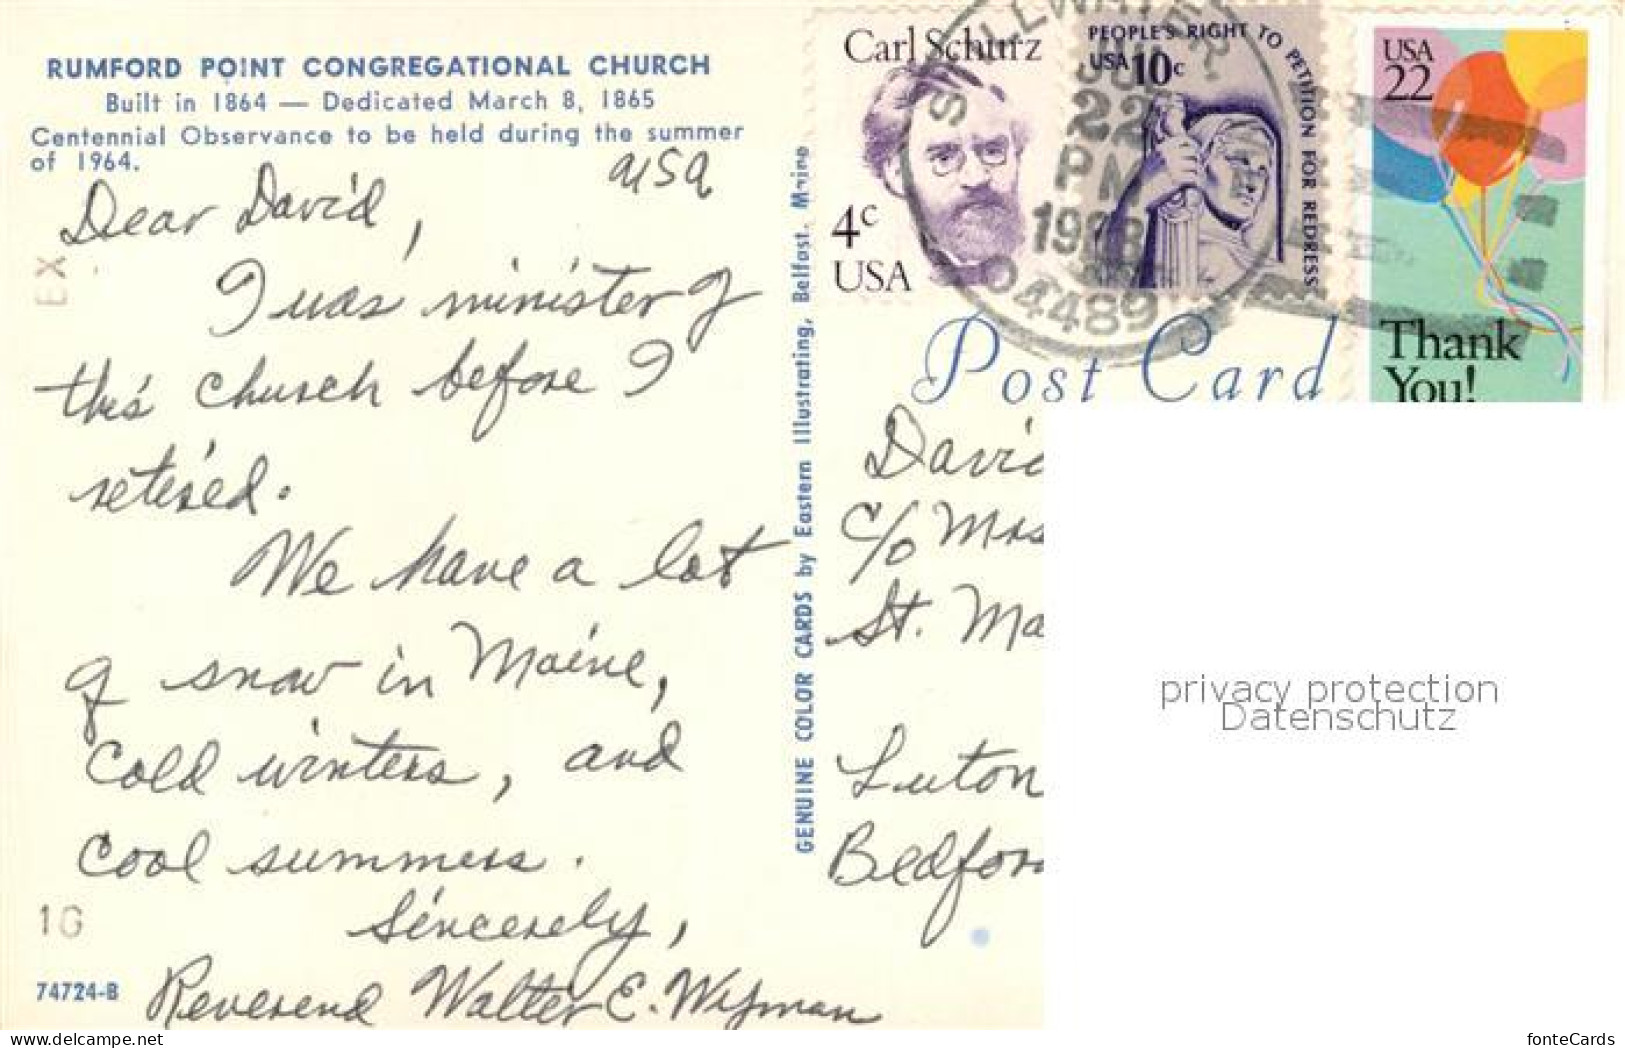 RUMFORD POINT CONGREGATIONAL CHURCH
Built in 1864 — Dedicated March 8, 1865
Centennial Observance to be held during the summer
of 1964.
USA
Dear David,
I was minister of
this church before I
retired.
We have a lot
of snow in Maine,
cold winters, and
cool summers.
Sincerely,
Reverend Walter E. Wyman
EX
1G
74724-B
GENUINE COLOR CARDS by Eastern Illustrating, Belfast, Maine
Carl Schurz
4c
USA
PEOPLE'S RIGHT TO PETITION FOR REDRESS
USA 10c
USA
22
Thank
You!
STILLWATER
22
PM
1988
04489
Post Card
David
C/o Mrs
St. Ma
Luton
Bedfor
privacy protection
Datenschutz
www.delcampe.net
fonteCards